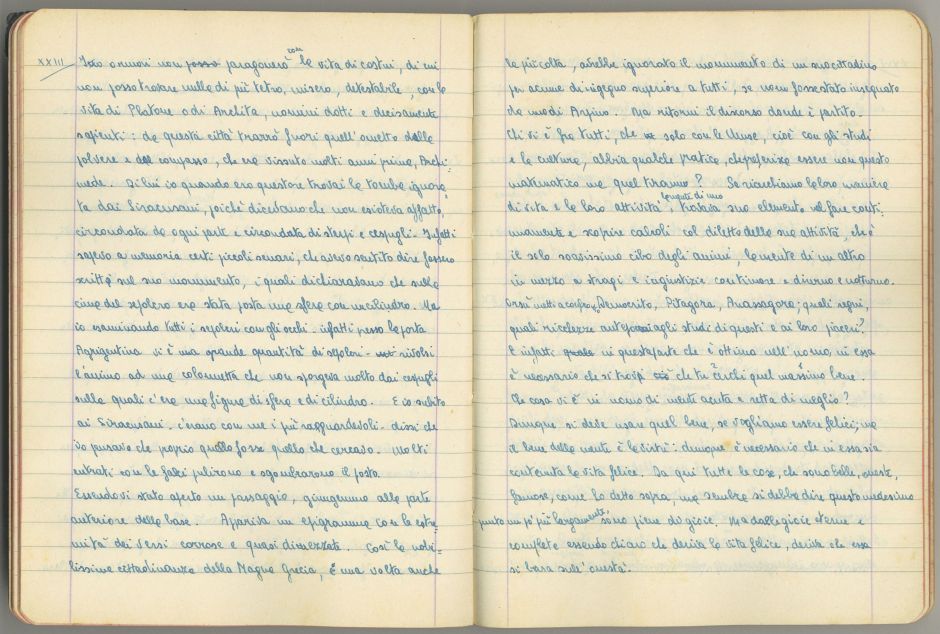 XXIII
Ma ormai non posso paragonerò con la vita di costui, di cui
non posso trovare nulla di più tetro, misero, detestabile, con la
vita di Platone o di Archita, uomini dotti e decisamente
sapienti: da questa città trarrò fuori quell'ometto dalla
polvere e dal compasso, che era vissuto molti anni prima, Archi-
mede. Di lui io quando ero questore trovai la tomba ignora-
ta dai Siracusani, poiché dicevano che non esisteva affatto,
circondata da ogni parte e circondata di sterpi e cespugli. Infatti
sapevo a memoria certi piccoli senari, che avevo sentito dire fossero
scritti sul suo monumento, i quali dichiaravano che sulla
cima del sepolcro era stata posta una sfera con un cilindro. Ma
io esaminando tutti i sepolcri con gli occhi - infatti presso la porta
Agrigentina vi è una grande quantità di sepolcri - rivolsi
l'animo ad una colonnetta che non sporgeva molto dai cespugli
sulla quale c'era una figura di sfera e di cilindro. E io subito
ai Siracusani, c'erano con me i più ragguardevoli - dissi che
io pensavo che proprio quello fosse quello che cercavo. Molti
entrati con le falci pulirono e sgombrarono il posto.
Essendovi stato aperto un passaggio, giungemmo alla parte
anteriore della base. Appariva un epigramma con le estre-
mità dei versi corrose e quasi dimezzate. Così la nobi-
lissima cittadinanza della Magna Grecia, e una volta anche
la più colta, avrebbe ignorato il monumento di un suo cittadino
per acume di ingegno superiore a tutti, se non fosse stato insegnato
da uno di Arpino. Ma ritorni il discorso donde è partito.
Chi vi è fra tutti, che solo con le Muse, cioè con gli studi
e la cultura, abbia qualche pratica, che preferisca essere non questo
matematico ma quel tiranno? Se ricerchiamo la loro maniera
di vita e la loro attività, la mente di uno trovava suo elemento nel fare conti-
nuamente e scoprire calcoli col diletto della sua attività, che è
il solo soavissimo cibo degli animi, la mente di un altro
in mezzo a stragi e ingiustizie continuae e diurno e notturno.
Orsù metti a confronto Democrito, Pitagora, Anassagora; quali regni,
quali ricchezze anteponi agli studi di questi e ai loro piaceri?
E infatti quale in questa parte che è ottima nell'uomo, in essa
è necessario che si trovi che tu cerchi quel massimo bene.
Che cosa vi è in uomo di mente acuta e retta di meglio?
Dunque si deve usare quel bene, se vogliamo essere felici; ma
il bene della mente è la virtù: dunque è necessario che in essa sia
contenuta la vita felice. Da qui tutte le cose, che sono belle, oneste,
famose, come ho detto sopra, ma sembra si debba dire questo medesimo
punto un po' più largamente, sono piene di gioie. Ma dalle gioie eterne e
complete essendo chiaro che deriva la vita felice, deriva che essa
si basa sull'onestà.